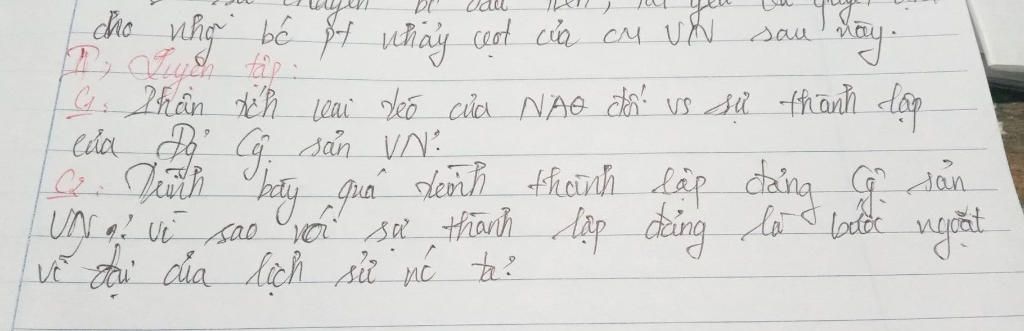 cho nhg bc pt nhảy vọt của CM VN sau này.
II, Luyện tập:
C1: Phân tích vai trò của NAQ đối vs sự thành lập
của Đg Cg sản VN?
C2: Trình bày quá trình thành lập đảng Cg sản
VN? vì sao nói sự thành lập đảng là bước ngoặt
vĩ đại của lịch sử nc ta?